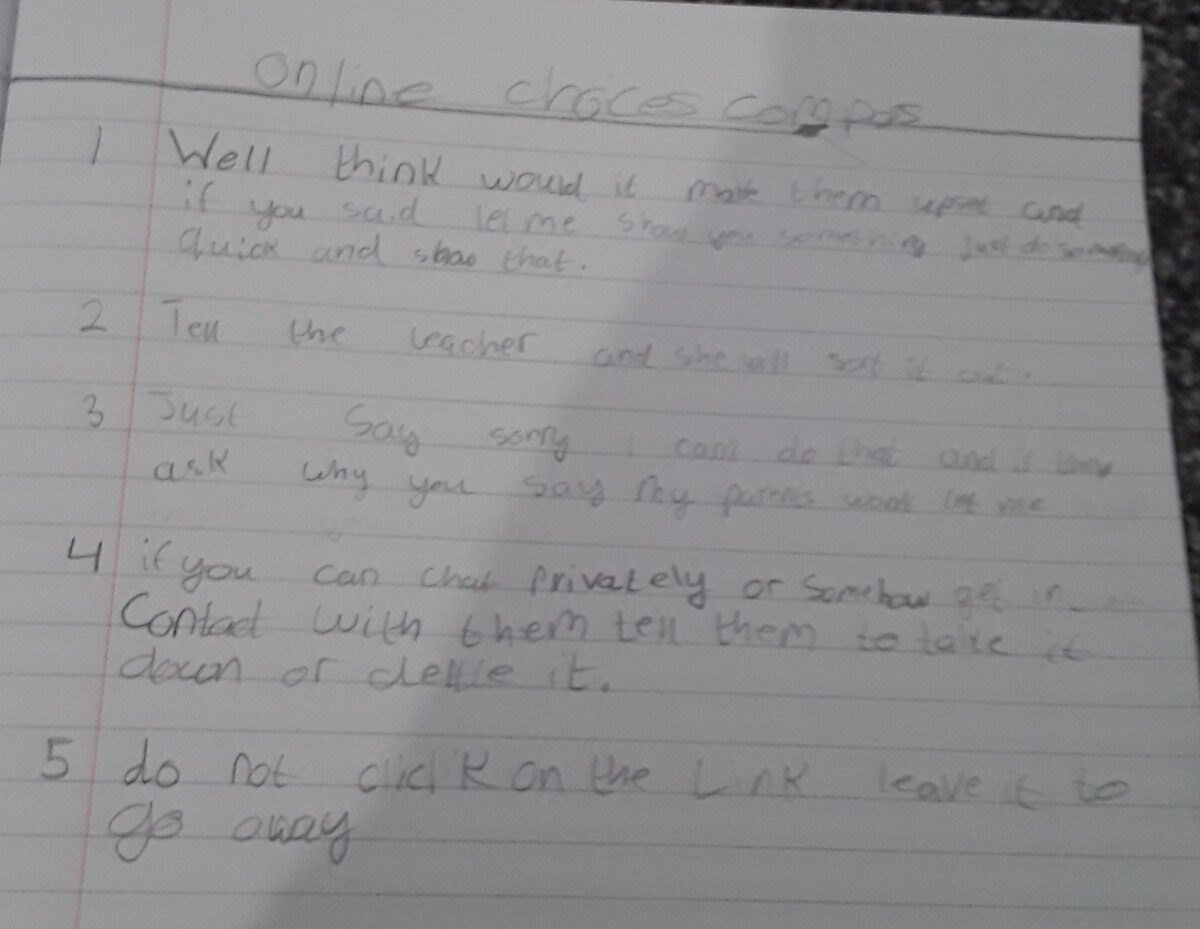 Online choices compas
1 Well think would it make them upset and
if you said let me show you something just do something
quick and show that.
2 Tell the teacher and she will sort it out.
3 Just Say sorry I cant do that and if they
ask why you say my parents wont let me
4 if you can chat privately or somehow get in
Contact with them tell them to take it
down or delete it.
5 do not click on the Link leave it to
go away